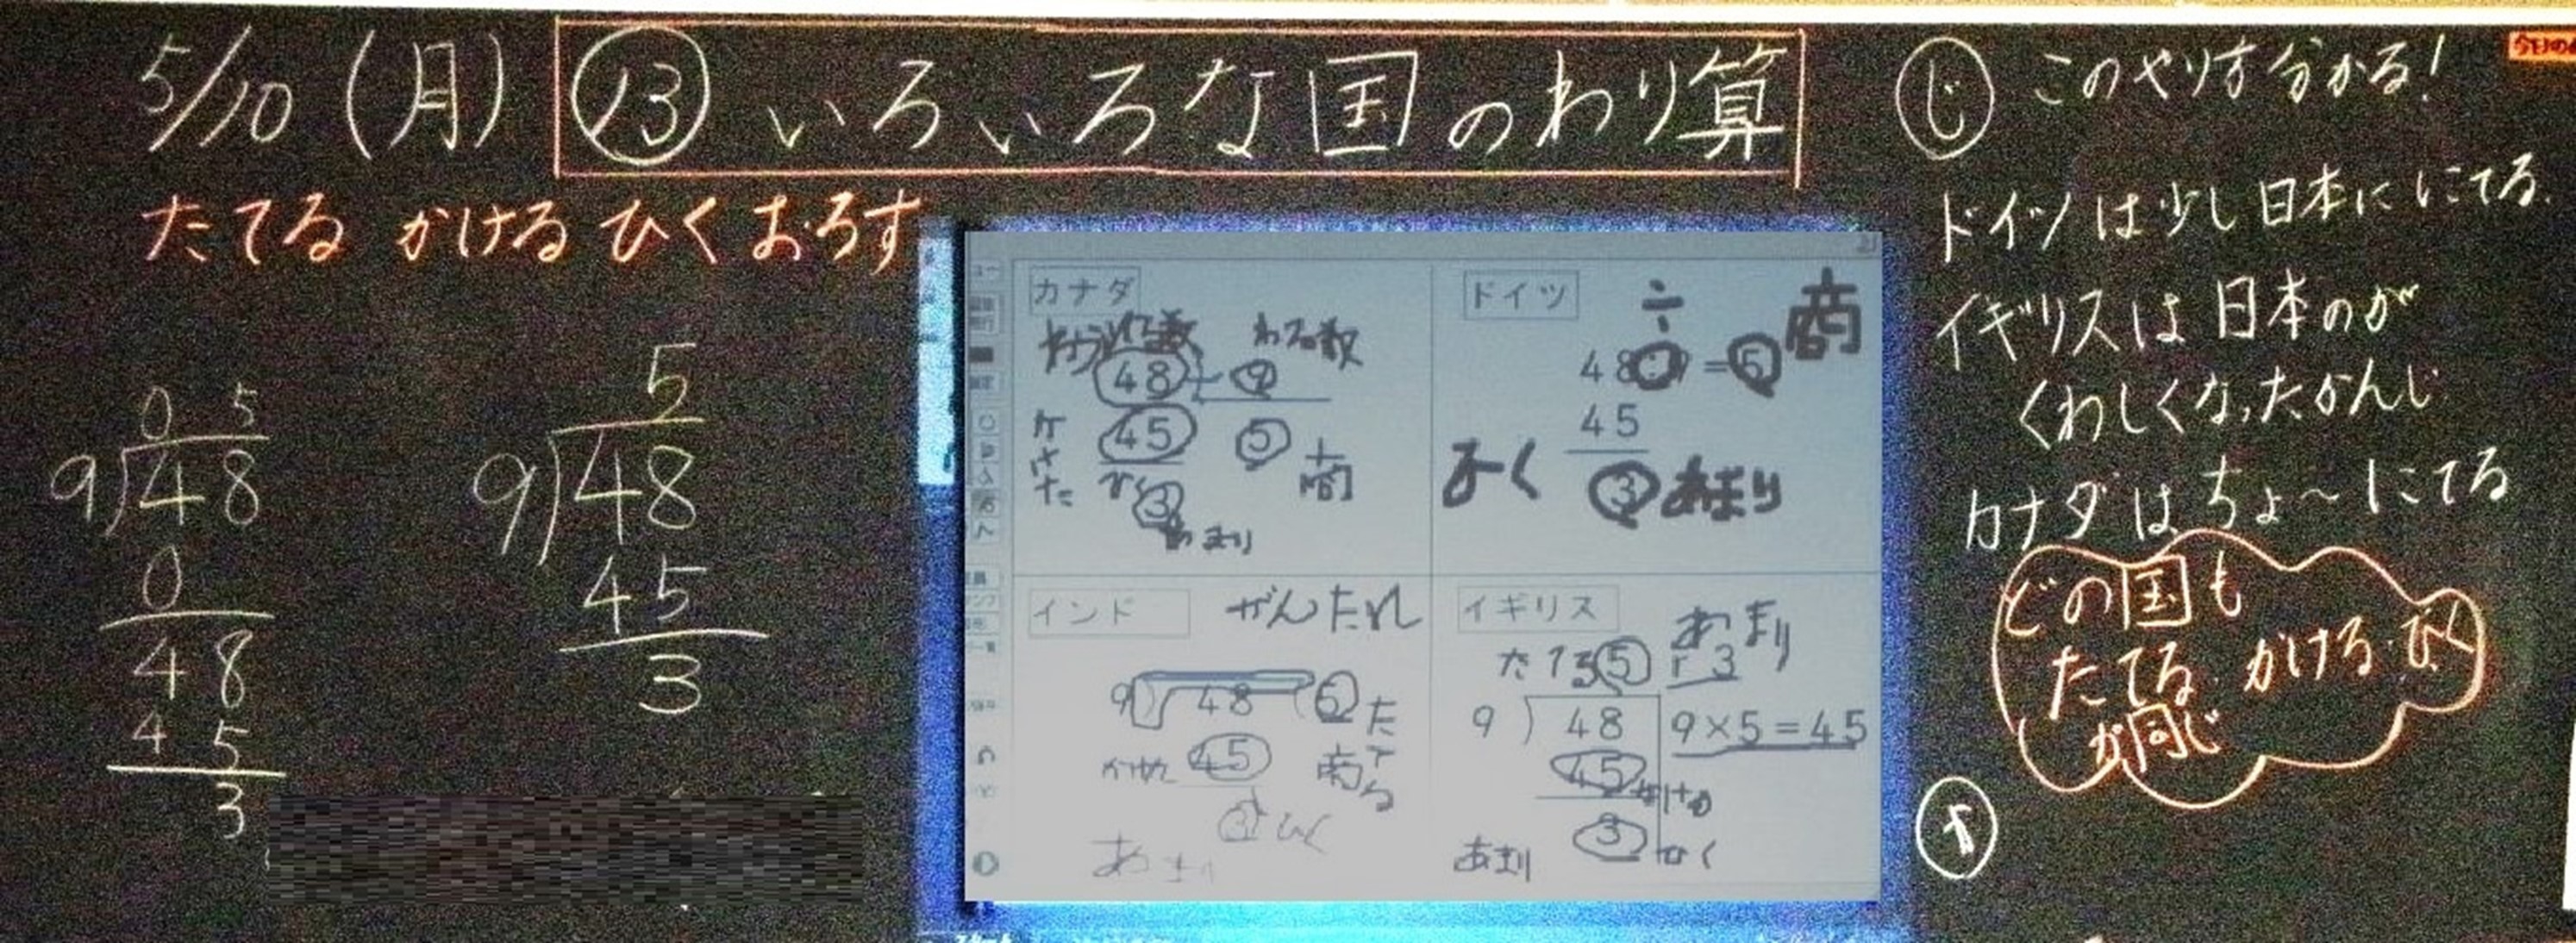 5/10(月) ⑬ いろいろな国のわり算
たてる かける ひく おろす
0 5
9)48
0
48
45
3
5
9)48
45
3
カナダ
わられる数 わる数
48 9
45 5
かけた
商
ひく
3
あまり
ドイツ
÷ 商
48:9=5
45
ひく 3 あまり
インド
9)48(5
たてる
45
商
3 ひく
あまり
イギリス
あまり
たてる 5 r 3
9)48 9×5=45
45 かける
3
あまり ひく
じ このやり方分かる!
ドイツは少し日本ににてる.
イギリスは日本のが
くわしくなったかんじ
カナダはちょ~にてる
どの国も
たてる・かける・ひく
が同じ